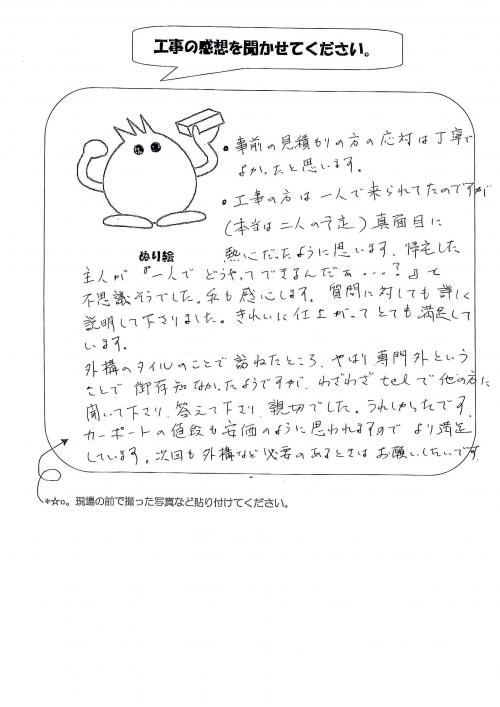 工事の感想を聞かせてください。
・事前の見積かりの方の応対は丁寧で
よかったと思います。
・工事の方は一人で来られてたのですが
(本当は二人の予定)真面目に
熱心だったように思います。帰宅した
ぬり絵
主人が『一人でどうやってできるんだぁ...?』と
不思議そうでした。私も感心します。質問に対しても詳しく
説明して下さりました。きれいに仕上がってとても満足して
います。
外構のタイルのことで訪ねたところ、やはり専門外という
ことで御存知なかったようですが、わざわざtelで他の方に
聞いて下さり、答えて下さり、親切でした。うれしかったです。
カーポートの値段も安価のように思われますので より満足
しています。次回も外構など必要のあるときはお願いしたいです
*☆○。現場の前で撮った写真など貼り付けてください。